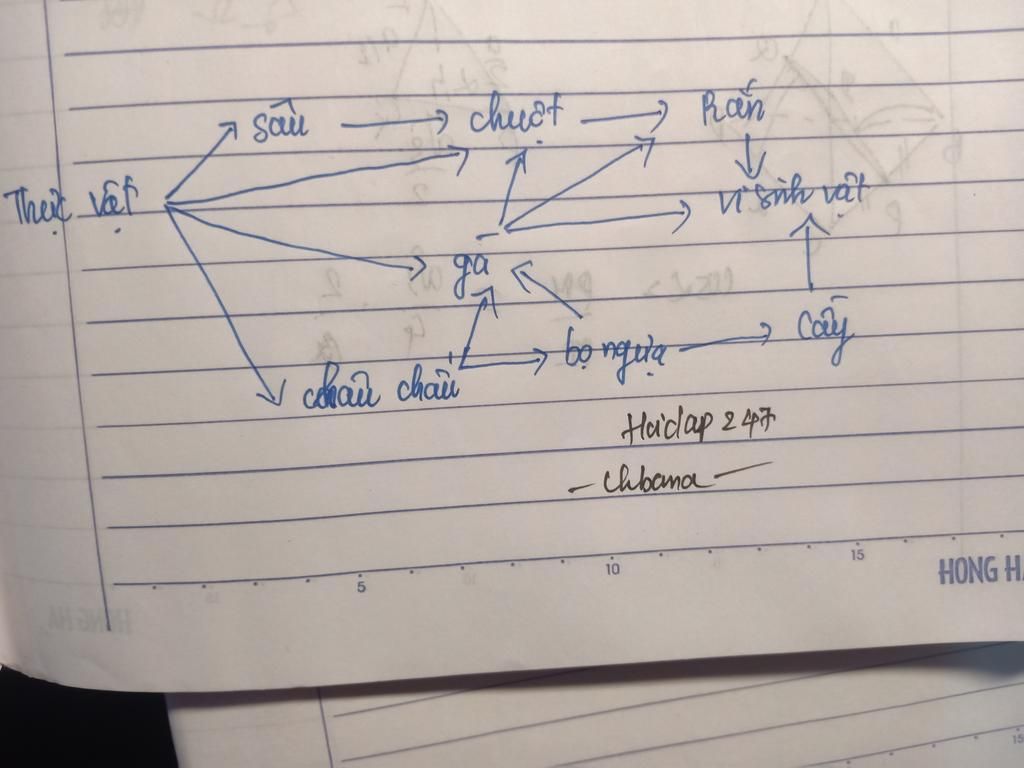 sâu → chuột → Rắn
Thực vật
vi sinh vật
gà
bọ ngựa → Cầy
châu chấu
Hoidap 247
- Chbana -
5 10 15
HONG HA